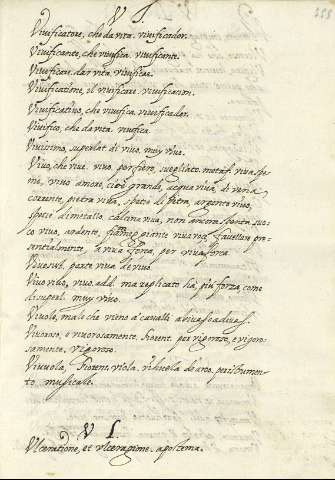 V I.
Vivificatore, che da vita. vivificador.
Vivificante, che vivifica. vivificante.
Vivificare. dar vita. vivificar.
Vivificatione, il vivificare. vivificacion.
Vivificativo, che vivifica. vivificador.
Vivifico, che da vita. vivifica.
Vivissimo, superlat. di vivo. muy vivo.
Vivo, che vive. vivo. per fiero, svegliato. metaf. viva spe
me, vivo amore, cioè grande, acqua viva, di vena
corrente, pietra viva, spetie di pietra, argento vivo,
spetie di metallo, calcina viva, non ancora spenta, fuo-
co vivo, ardente, piante viva voce, favellar pre-
sentialmente, a viva forza, per viva forza
Vivo sust. parte viva. de vivo.
Vivo vivo, vivo. add. ma replicato ha più forza, come
di superl. muy vivo.
Vivole, male che viene a cavalli. abivas adivas.
Vivoroso, e vivorosamente, Fiorent. per vigoroso, e vigoro-
samente. vigoroso.
Vivuola, Fiorent. viola. vihuela de arco. per istrumen-
to musicale.
V L
Ulceratione, et ulceragione. apostema.